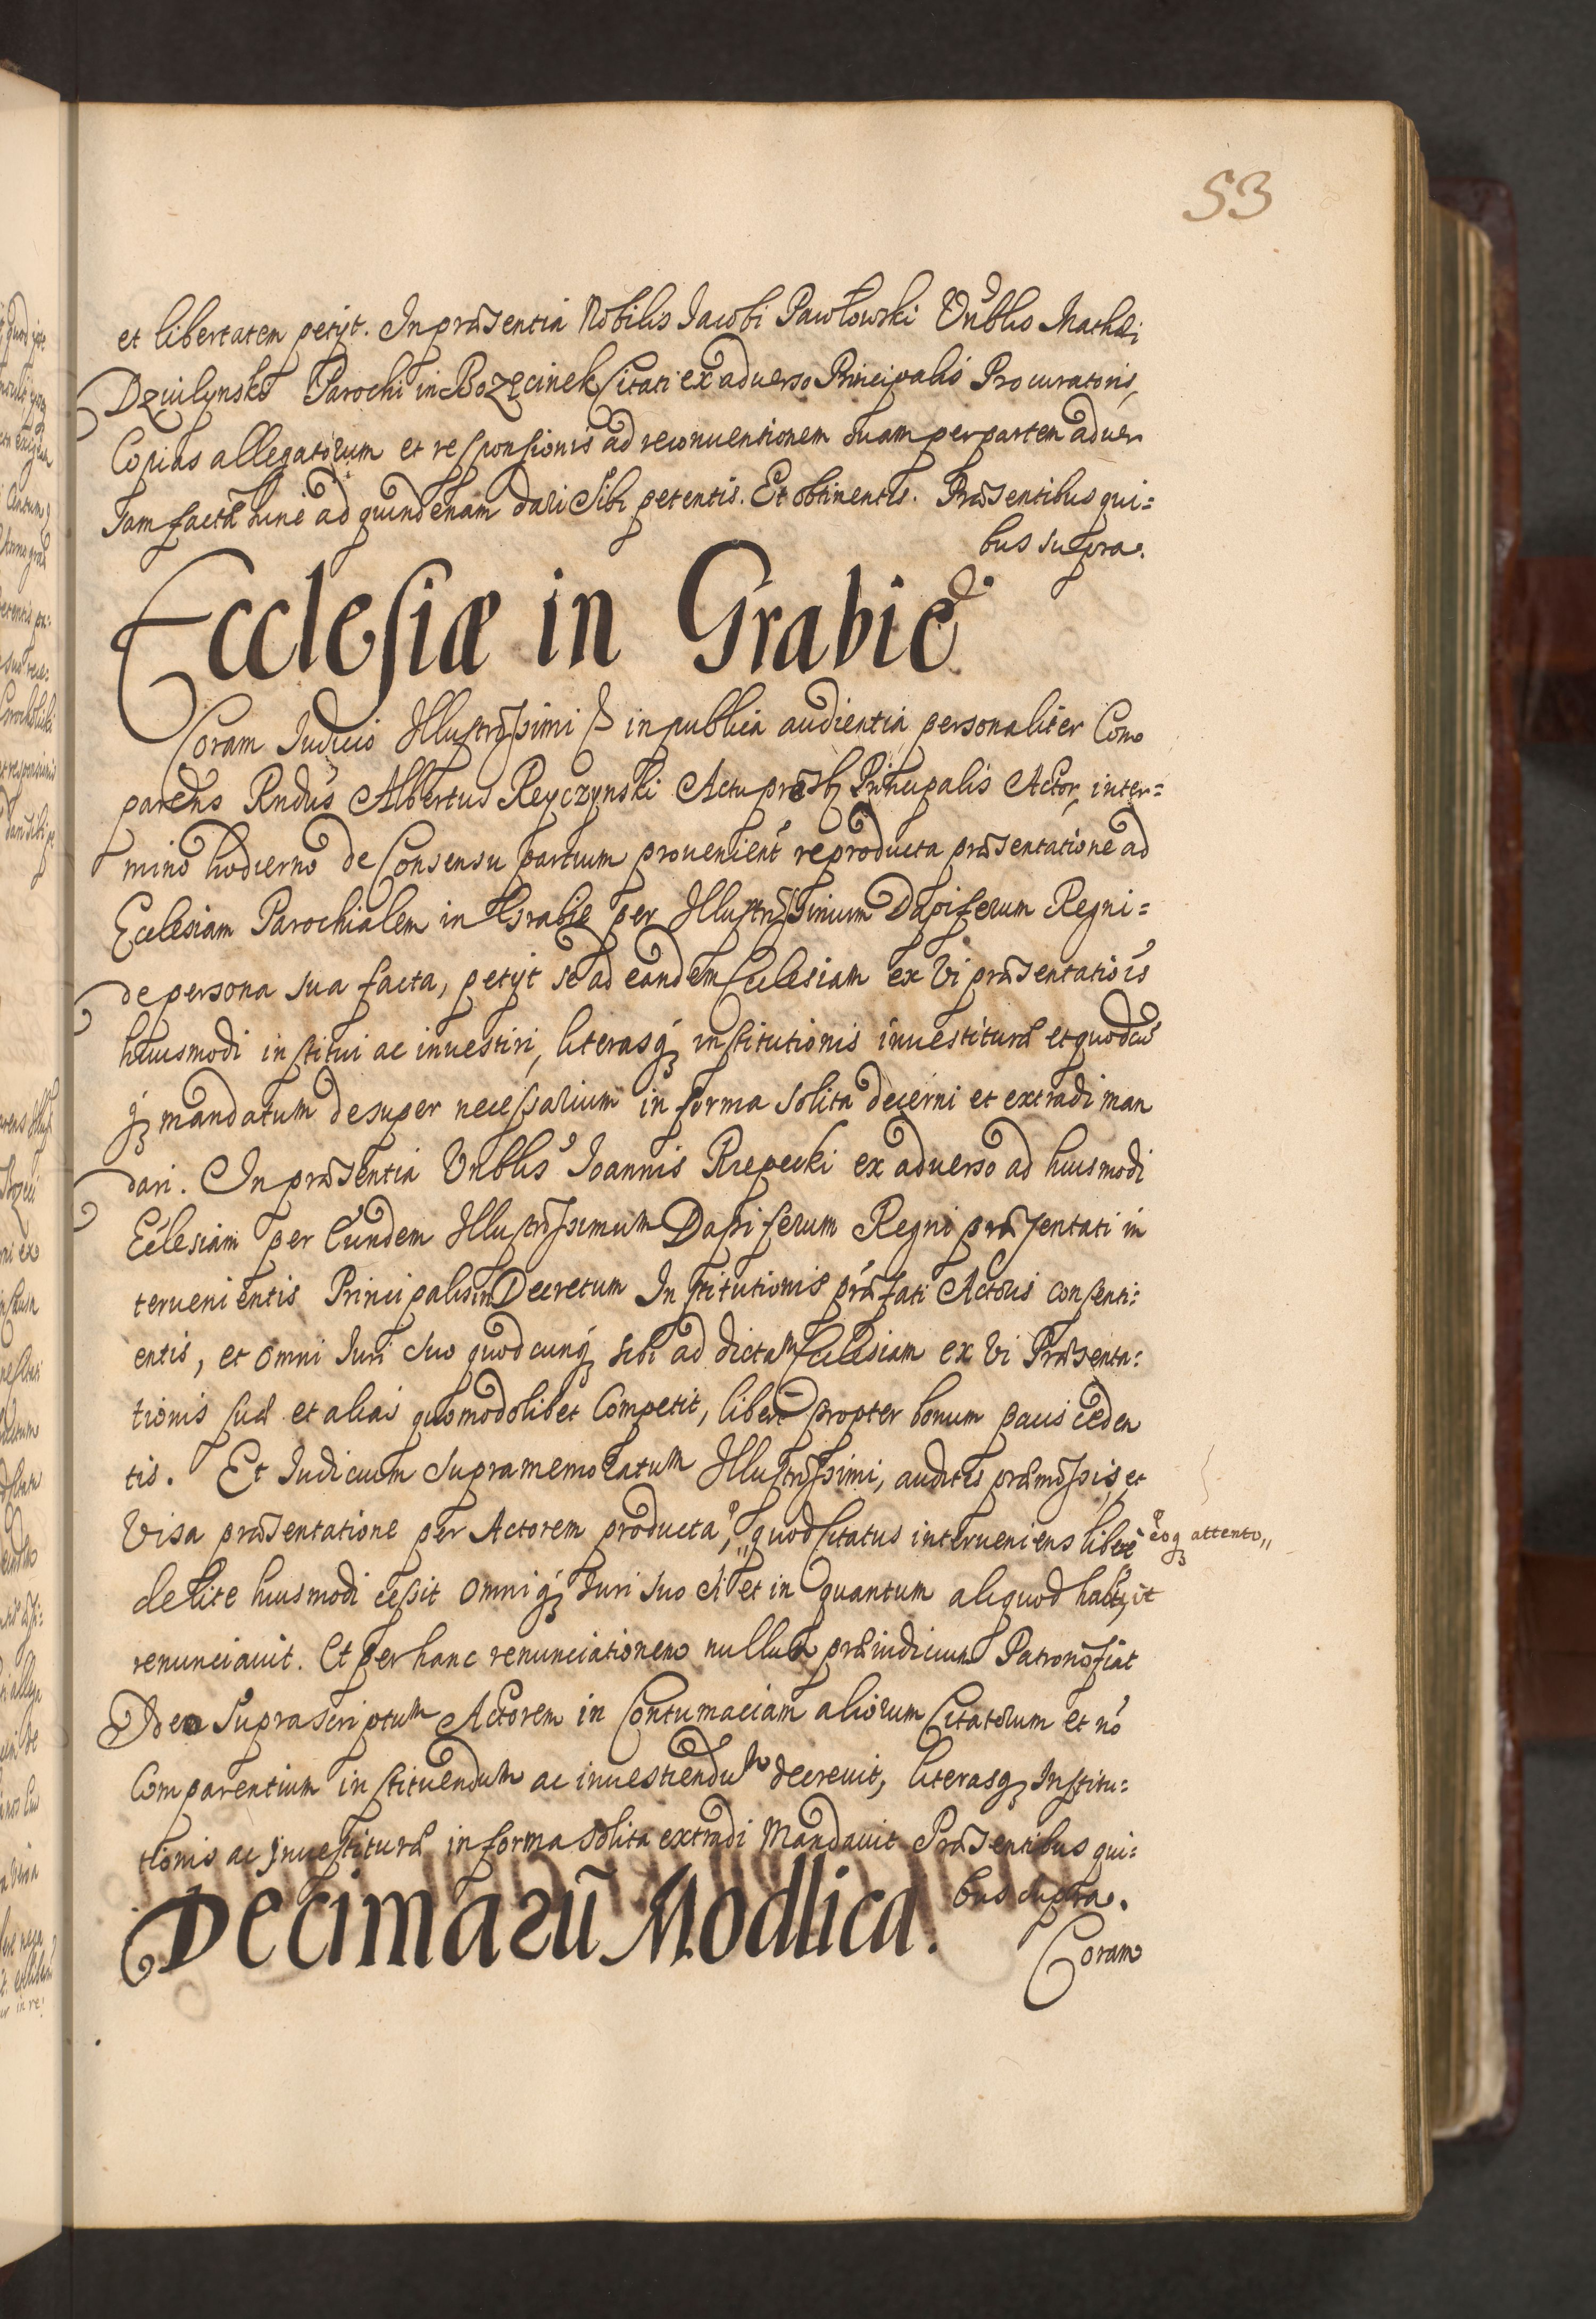 53
et libertatem petijt. In præsentia Nobilis Jacobi Pawłowski Vnblis Mathæi
Dziulynski Parochi in Bozęcinek Citati ex aduerso Principalis Procuratoris,
Copias allegatorum et responsionis ad reconuentionem suam per partem aduer
sam factæ hinc ad quindenam dari sibi petentis. Et obtinentis. Præsentibus qui=
bus supra.
Ecclesiæ in Grabie
Coram Judicio Illustrissimi in publica audientia personaliter Com
parens Rndus Albertus Reyczynski Actu præsb Principalis Actor, inter=
mino hodierno de Consensu partium prouenient reproducta præsentatione ad
Ecclesiam Parochialem in Grabie per Illustrissimum Dapiferum Regni=
de persona sua facta, petijt se ad eandem Ecclesiam ex vi præsentatiois
huiusmodi institui ac inuestiri, literasq institutionis inuestituræ et quodcu
q mandatum desuper necessarium in forma solita decerni et extradi man
dari. In præsentia Vnblis Joannis Rzepecki ex aduerso ad huiusmodi
Ecclesiam per Eundem Illustrissimum Dapiferum Regni præsentati in
teruenientis Principalis in Decretum Institutionis præfati Actoris consenti=
entis, et omni Juri suo quodcunq sibi ad dictam Ecclesiam ex vi Præsenta=
tionis suæ et alias quomodolibet Competit, liberè propter bonum pacis ceden
tis. Et Judicium supramemoratum Illustrissimi, auditis præmissis, et
Visa præsentatione per Actorem producta, quod Citatus interueniens liberè
eoq attento,,
de lite huiusmodi cessit omniq Juri suo si et in quantum aliquod habuit
renunciauit. Et per hanc renunciationem nullum præiudicium Patrono fiat
Ideo Suprascriptum Actorem in Contumaciam aliorum Citatorum et nō
Comparentium instituendum ac inuestiendum decreuit, literasq Institu=
tionis ac Inuestituræ in forma solita extradi Mandauit Præsentibus qui=
bus supra.
Decimarū Modlica.
Coram